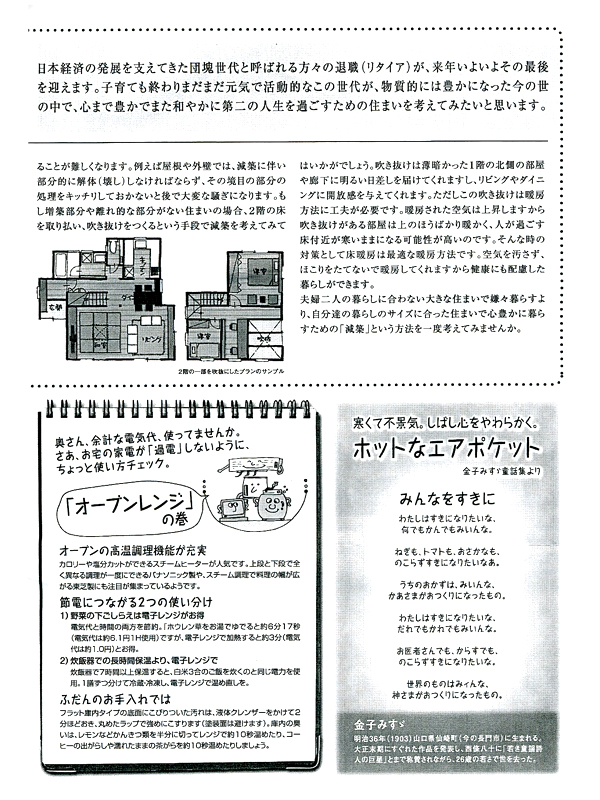 日本経済の発展を支えてきた団塊世代と呼ばれる方々の退職（リタイア）が、来年いよいよその最後
を迎えます。子育ても終わりまだまだ元気で活動的なこの世代が、物質的には豊かになった今の世
の中で、心まで豊かでまた和やかに第二の人生を過ごすための住まいを考えてみたいと思います。
ることが難しくなります。例えば屋根や外壁では、減築に伴い
部分的に解体（壊し）しなければならず、その境目の部分の
処理をキッチリしておかないと後で大変な騒ぎになります。も
し増築部分や離れ的な部分がない住まいの場合、2階の床
を取り払い、吹き抜けをつくるという手段で減築を考えてみて
玄関
リビング
寝室
吹抜
2階の一部を吹抜にしたプランのサンプル
はいかがでしょう。吹き抜けは薄暗かった1階の北側の部屋
や廊下に明るい日差しを届けてくれますし、リビングやダイニ
ングに開放感を与えてくれます。ただしこの吹き抜けは暖房
方法に工夫が必要です。暖房された空気は上昇しますから
吹き抜けがある部屋は上のほうばかり暖かく、人が過ごす
床付近が寒いままになる可能性が高いのです。そんな時の
対策として床暖房は最適な暖房方法です。空気を汚さず、
ほこりをたてないで暖房してくれますから健康にも配慮した
暮らしができます。
夫婦二人の暮らしに合わない大きな住まいで嫌々暮らすよ
り、自分達の暮らしのサイズに合った住まいで心豊かに暮ら
すための「減築」という方法を一度考えてみませんか。
奥さん、余計な電気代、使ってませんか。
さあ、お宅の家電が「過電」しないように、
ちょっと使い方チェック。
「オーブンレンジ」
の巻
オーブンの高温調理機能が充実
カロリーや塩分カットができるスチームヒーターが人気です。上段と下段で全
く異なる調理が一度にできるパナソニック製や、スチーム調理で料理の幅が広
がる東芝製にも注目が集まっているようです。
節電につながる2つの使い分け
1）野菜の下ごしらえは電子レンジがお得
電気代と時間の両方を節約。「ホウレン草をお湯でゆでると約6分17秒
（電気代は約6.1円1H使用）ですが、電子レンジで加熱すると約3分（電気
代は約1.0円）とお得。
2）炊飯器での長時間保温より、電子レンジで
炊飯器で7時間以上保温すると、白米3合のご飯を炊くのと同じ電力を使
用。1膳ずつ分けて冷蔵・冷凍し、電子レンジで温め直しを。
ふだんのお手入れでは
フラット庫内タイプの底面にこびりついた汚れは、液体クレンザーをかけて2
分ほどおき、丸めたラップで強めにこすります（塗装面は避けます）。庫内の臭
いは、レモンなどかんきつ類を半分に切ってレンジで約10秒温めたり、コー
ヒーの出がらしや濡れたままの茶がらを約10秒温めたりしましょう。
寒くて不景気。しばし心をやわらかく。
ホットなエアポケット
金子みすゞ童話集より
みんなをすきに
わたしはすきになりたいな、
何でもかんでもみいんな。
ねぎも、トマトも、おさかなも、
のこらずすきになりたいなあ。
うちのおかずは、みいんな、
かあさまがおつくりになったもの。
わたしはすきになりたいな、
だれでもかれでもみいんな。
お医者さんでも、からすでも、
のこらずすきになりたいな。
世界のものはみィんな、
神さまがおつくりになったもの。
金子みすゞ
明治36年（1903）山口県仙崎町（今の長門市）に生まれる。
大正末期にすぐれた作品を発表し、西條八十に「若き童謡詩
人の巨星」とまで称賛されながら、26歳の若さで世を去った。